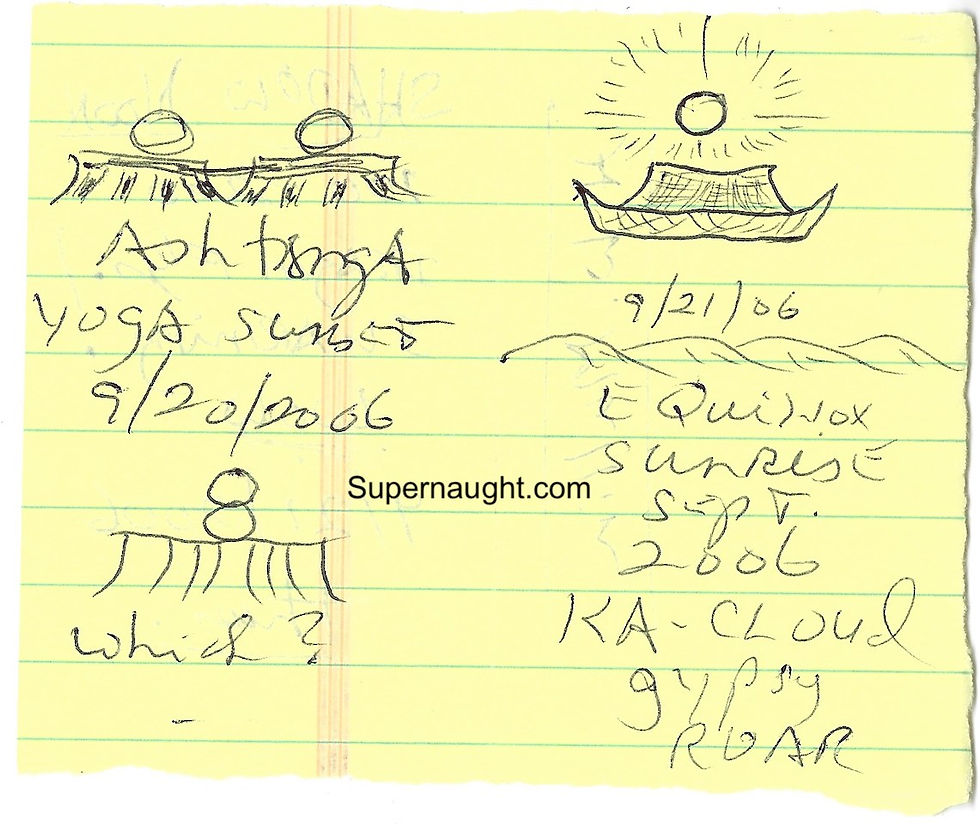 AshtangA
YOgA SUNSET
9/20/2006
which?
Supernaught.com
9/21/06
EQUiNOX
SUNRISE
SepT.
2006
KA-CLOUd
gypsy
ROAR